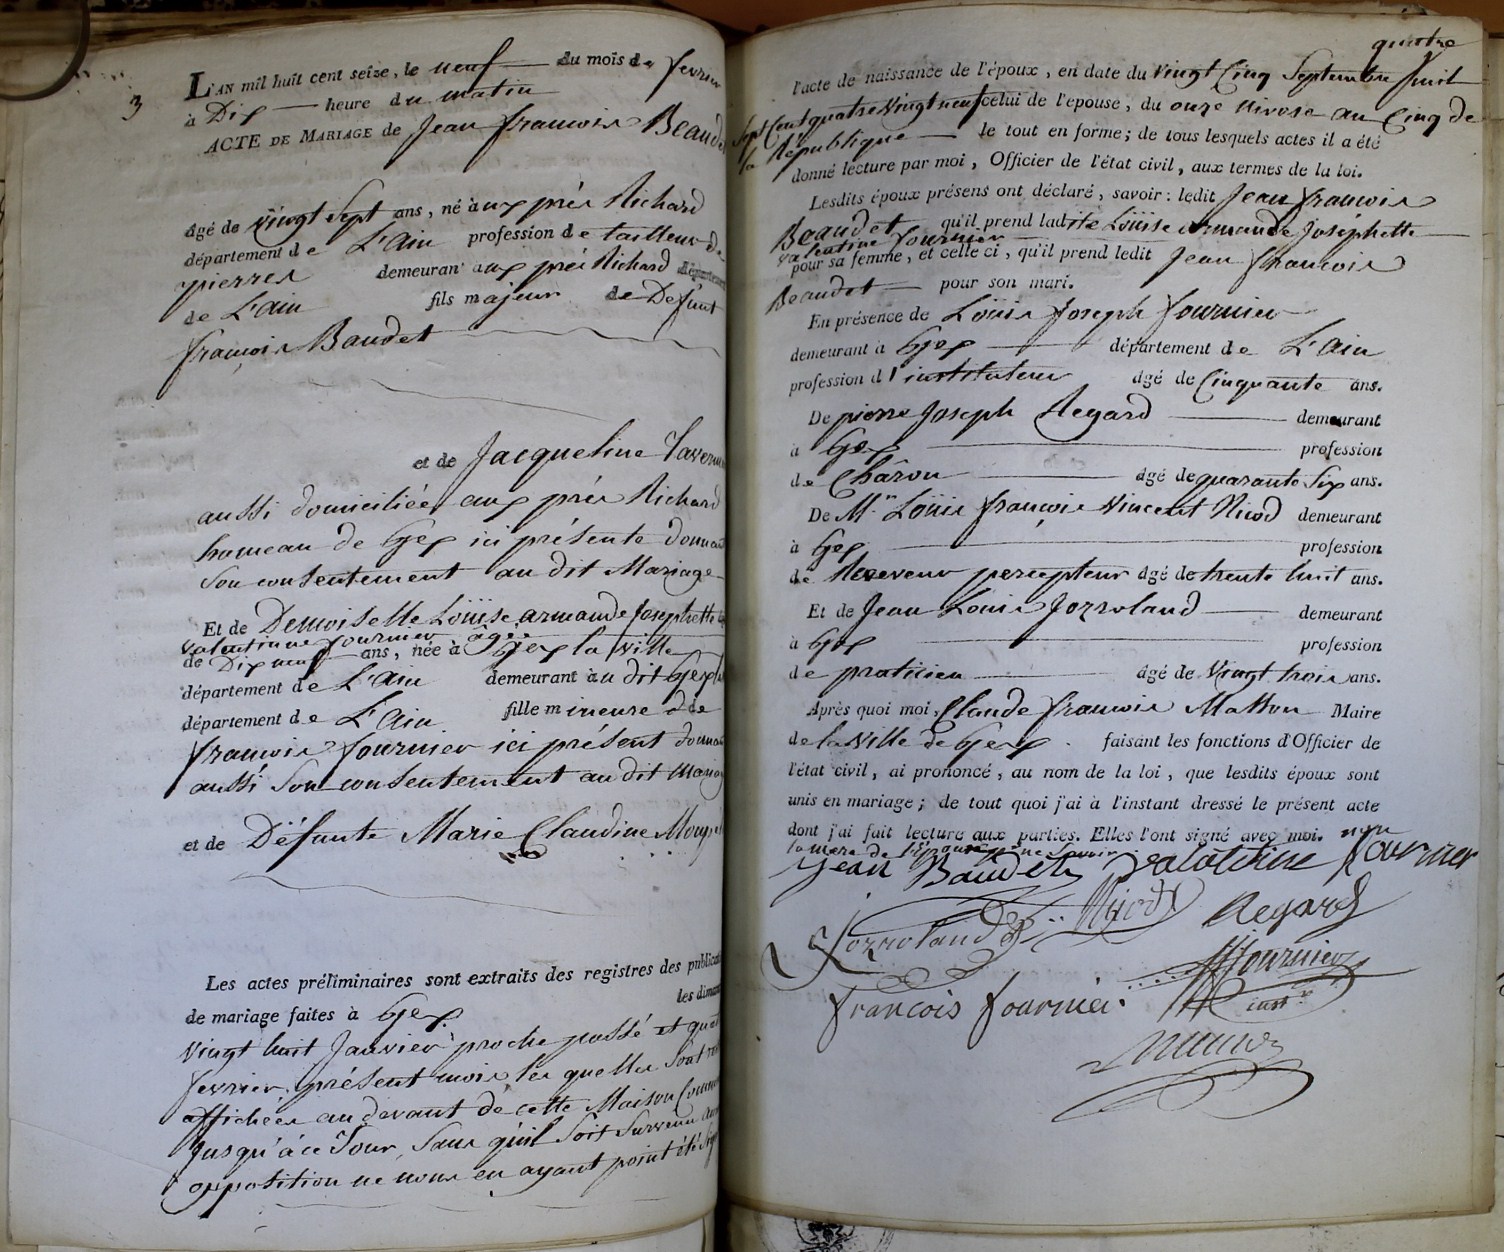 3
L'AN mil huit cent seize, le neuf du mois de fevrier
à Dix heure du matin
ACTE DE MARIAGE de Jean francois Beaudet
âgé de vingt Sept ans, né aux prés Richard
département de L'ain profession de tailleur de
pierres demeurant aux prés Richard département
de L'ain fils majeur de Defunt
françois Baudet
et de Jacqueline
aussi domiciliée aux prés Richard
hameau de Gex ici présente donnant
Son consentement au dit Mariage
Et de Demoiselle Loüise armande Josephette
valentinne fournier agée
de Dix neuf ans, née à Gex la ville
département de L'Ain demeurant au dit Gex
département de L'Ain fille mineure de
francois fournier ici présent donnant
aussi Son consentement au dit mariage
et de Défunte Marie Claudine
Les actes préliminaires sont extraits des registres des publications
de mariage faites à Gex. les dimanches
vingt huit Janvier proche passé et quatre
fevrier présent mois les quelles Sont
affichées au devant de cette Maison Commune
Jusqu'à ce Jour, Sans qu'il Soit Survenu
opposition ne nous en ayant point été
quatre
l'acte de naissance de l'époux, en date du vingt Cinq Septembre mil
Sept Cent quatre vingt neuf celui de l'epouse, du onze nivose an Cinq de
la République le tout en forme; de tous lesquels actes il a été
donné lecture par moi, Officier de l'état civil, aux termes de la loi.
Lesdits époux présens ont déclaré, savoir: ledit Jean francois
Beaudet qu'il prend ladite Loüise armande Joséphette
valentine fournier
pour sa femme, et celle ci, qu'il prend ledit Jean francois
Beaudet pour son mari.
En présence de Loüis Joseph fournier
demeurant à Gex département de L'Ain
profession d'instituteur âgé de Cinquante ans.
De pierre Joseph Regard demeurant
à Gex profession
de Châron âgé de quarante Six ans.
De Mr. Loüis françois Vincent Nicod demeurant
à Gex profession
de Receveur percepteur âgé de trente huit ans.
Et de Jean Louis Jozroland demeurant
à Gex profession
de praticien âgé de Vingt trois ans.
Après quoi moi, Claude francois Matton Maire
de la Ville de Gex faisant les fonctions d'Officier de
l'état civil, ai prononcé, au nom de la loi, que lesdits époux sont
unis en mariage; de tout quoi j'ai à l'instant dressé le présent acte
dont j'ai fait lecture aux parties. Elles l'ont signé avec moi. non
la mere de l'épouse
Jean Baudet valentine fournier
Jozroland Nicod Regard
fournier
francois fournier. instr